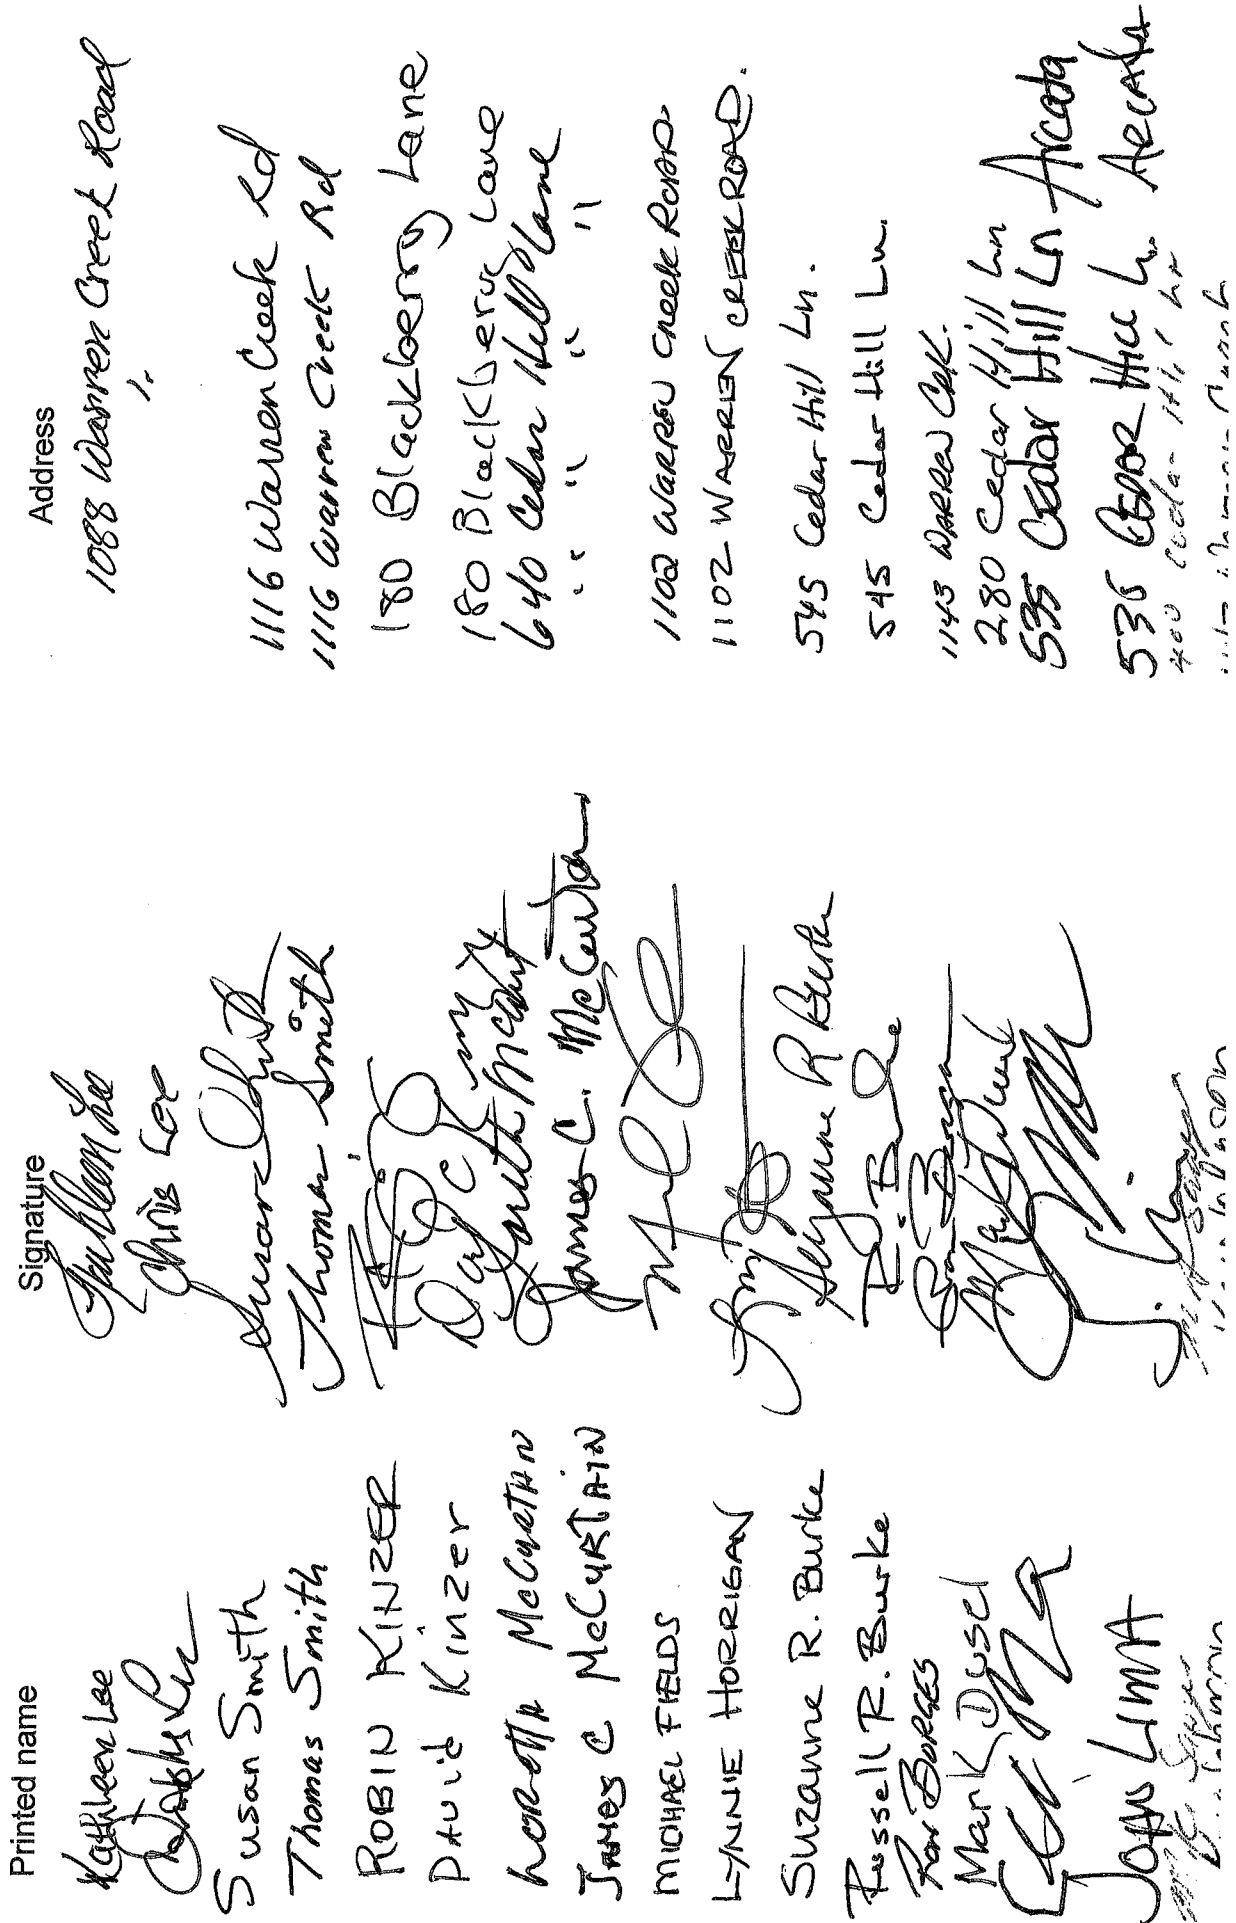 Printed name Signature Address
Kathleen Lee Kathleen Lee 1088 Warren Creek Road
Chris Lee "
Susan Smith Susan Smith 1116 Warren Creek Rd
Thomas Smith Thomas Smith 1116 Warren Creek Rd
ROBIN KINZER 180 Blackberry Lane
David Kinzer 180 Blackberry Lane
LORETTA McCURTAIN Loretta McCurtain 640 Cedar Hill Lane
JAMES C McCURTAIN James C. McCurtain " " " "
MICHAEL FIELDS 1102 WARREN CREEK ROAD
LYNNE HORRIGAN 1102 WARREN CREEK ROAD.
Suzanne R. Burke Suzanne R Burke 545 Cedar Hill Ln.
Russell R. Burke 545 Cedar Hill Ln.
Ron BORGES 1143 WARREN CRK.
Mark Dusel 280 Cedar Hill Ln
535 Cedar Hill Ln Arcata
JOHN LIMA 535 CEDAR HILL Ln ARCATA